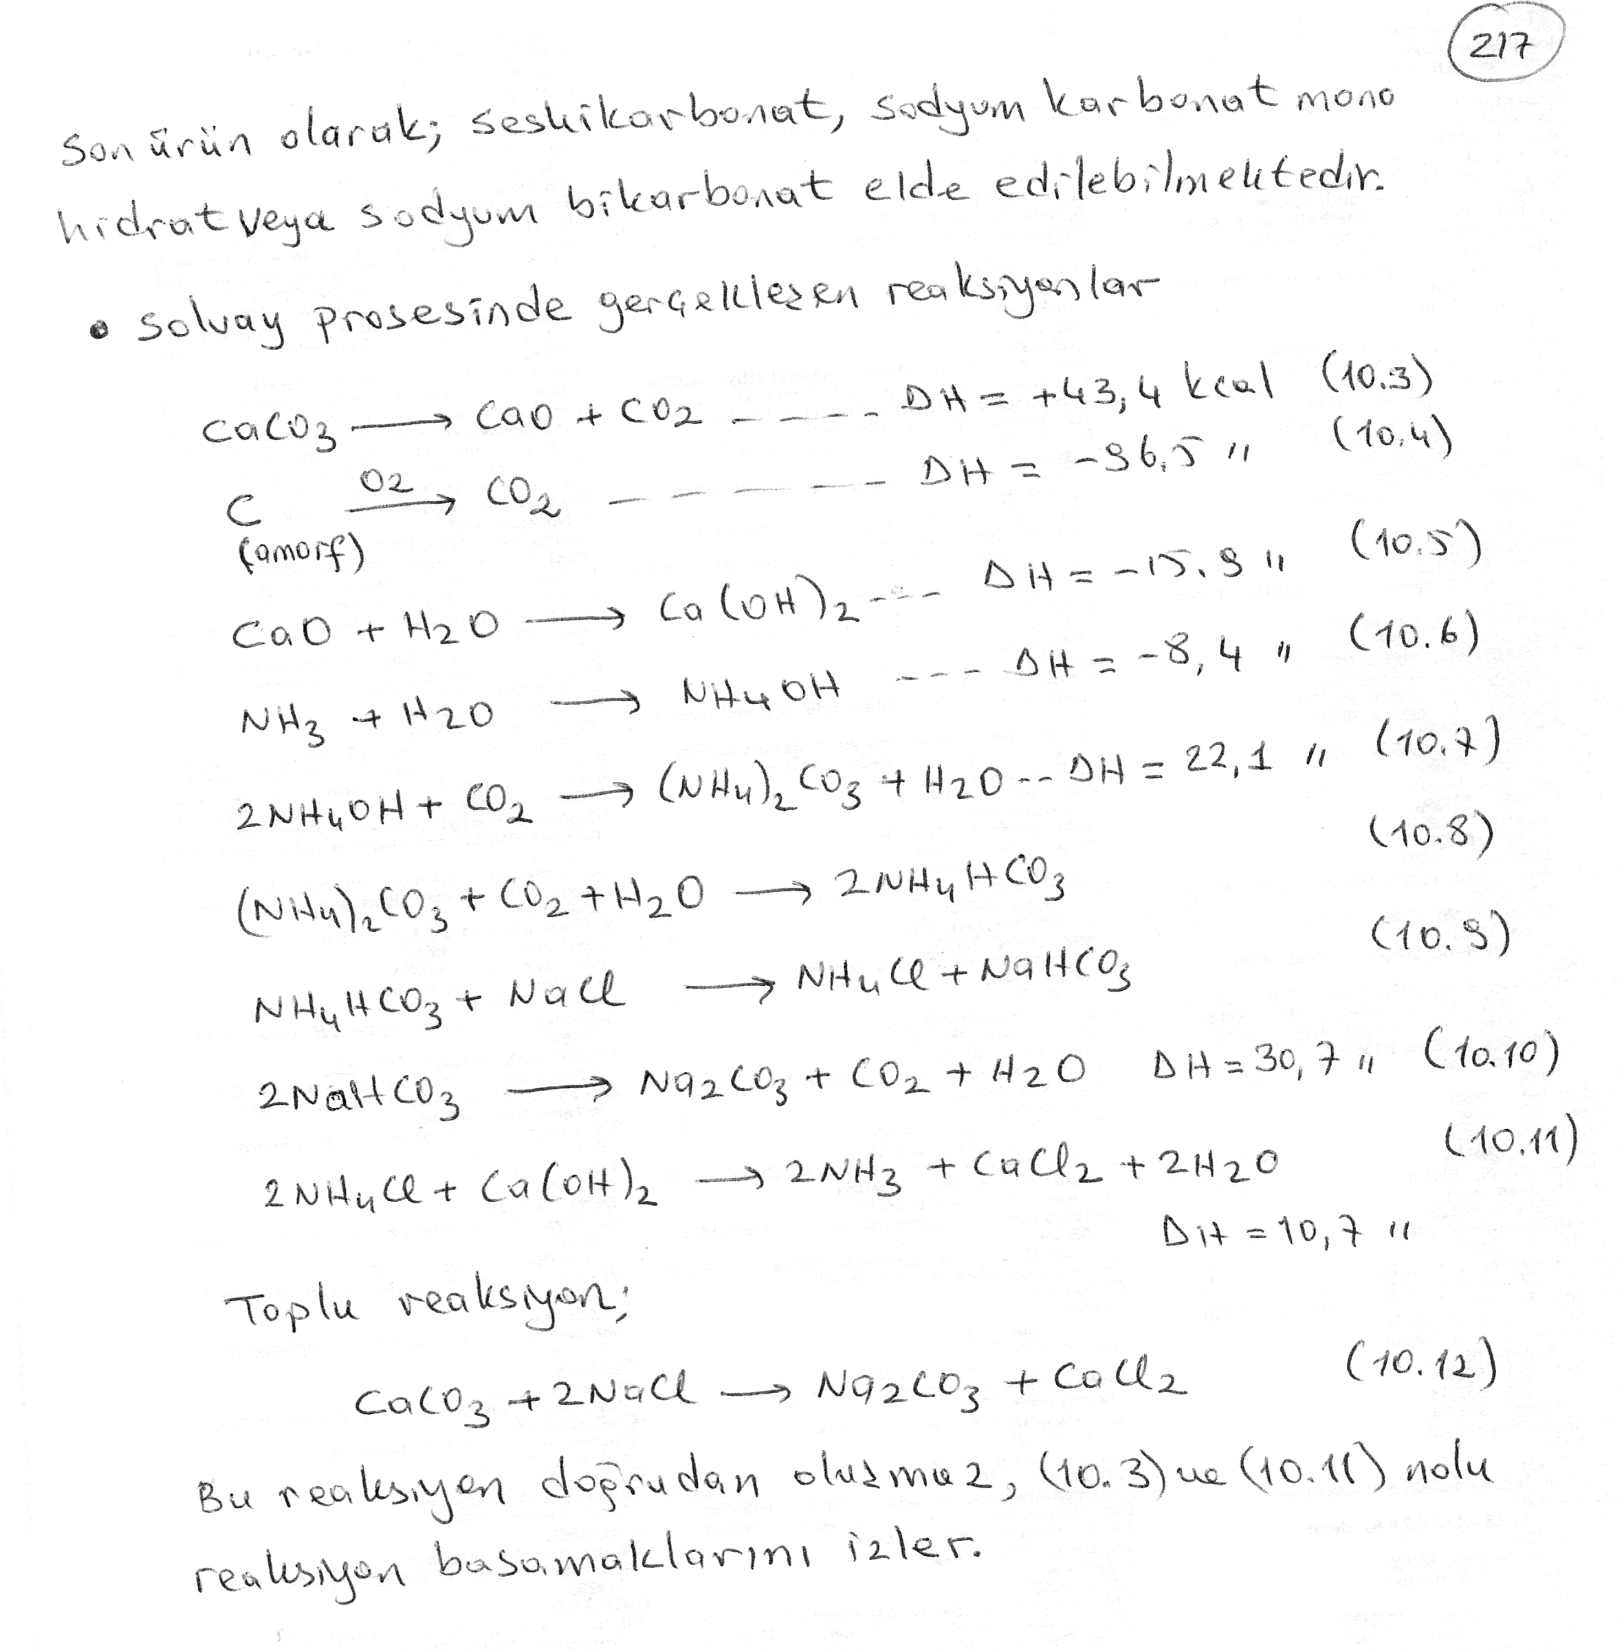 217
Son ürün olarak; seskikarbonat, sodyum karbonat mono
hidrat veya sodyum bikarbonat elde edilebilmektedir.
• Solvay prosesinde gerçekleşen reaksiyonlar
CaCO3 ⟶ CaO + CO2 ----- ΔH = +43,4 kcal (10.3)
C O2⟶ CO2 ------ ΔH = -96,5 " (10.4)
(amorf)
CaO + H2O ⟶ Ca(OH)2 --- ΔH = -15.9 " (10.5)
NH3 + H2O ⟶ NH4OH --- ΔH = -8,4 " (10.6)
2NH4OH + CO2 ⟶ (NH4)2CO3 + H2O -- ΔH = 22,1 " (10.7)
(NH4)2CO3 + CO2 + H2O ⟶ 2NH4HCO3 (10.8)
NH4HCO3 + NaCl ⟶ NH4Cl + NaHCO3 (10.9)
2NaHCO3 ⟶ Na2CO3 + CO2 + H2O ΔH = 30,7 " (10.10)
2NH4Cl + Ca(OH)2 ⟶ 2NH3 + CaCl2 + 2H2O (10.11)
ΔH = 10,7 "
Toplu reaksiyon;
CaCO3 + 2NaCl ⟶ Na2CO3 + CaCl2 (10.12)
Bu reaksiyon doğrudan oluşmaz, (10.3) ve (10.11) nolu
reaksiyon basamaklarını izler.